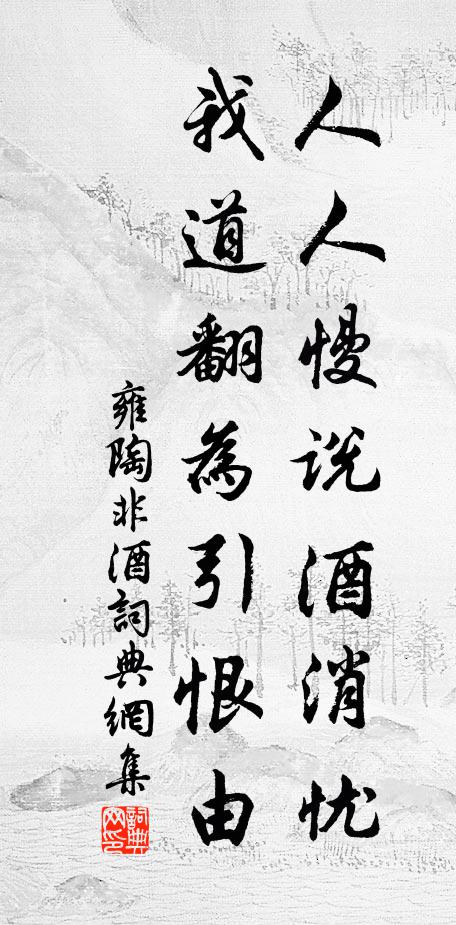 人人慢说酒消忧
我道翻為引恨由
雍陶非酒詞典網集
詞典网印